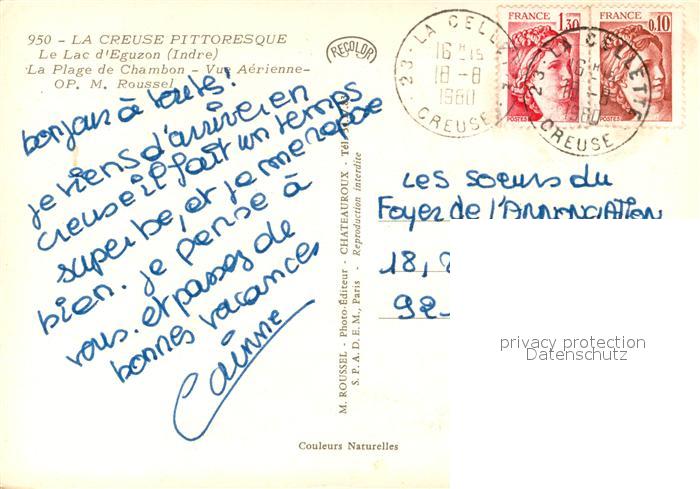 950 - LA CREUSE PITTORESQUE
Le Lac d'Eguzon (Indre)
La Plage de Chambon - Vue Aérienne-
OP. M. Roussel
RECOLOR
bonjour à toutes!
je viens d'arriver en
creuse il fait un temps
superbe, et je me repose
bien. je pense à
vous. et passez de
bonnes vacances
Corinne
M. ROUSSEL - Photo-Éditeur - CHATEAUROUX - Tél.
S. P. A. D. E. M., Paris - Reproduction interdite
Couleurs Naturelles
23 - LA CELLETTE
16 H 15
18 - 8
1980
CREUSE
FRANCE
1,30
POSTES
FRANCE
0,10
POSTES
23 - LA CELLETTE
1980
CREUSE
Les soeurs du
Foyer de l'ANNONCIATION
18,
92
privacy protection
Datenschutz